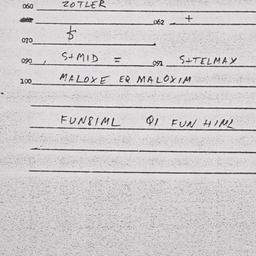 060 ZOTLER
062 +
070 b
090 , S+MID = 091 S+TELMAX
100 MALOXE EQ MALOXIM
FUN8IML QI FUN HIML